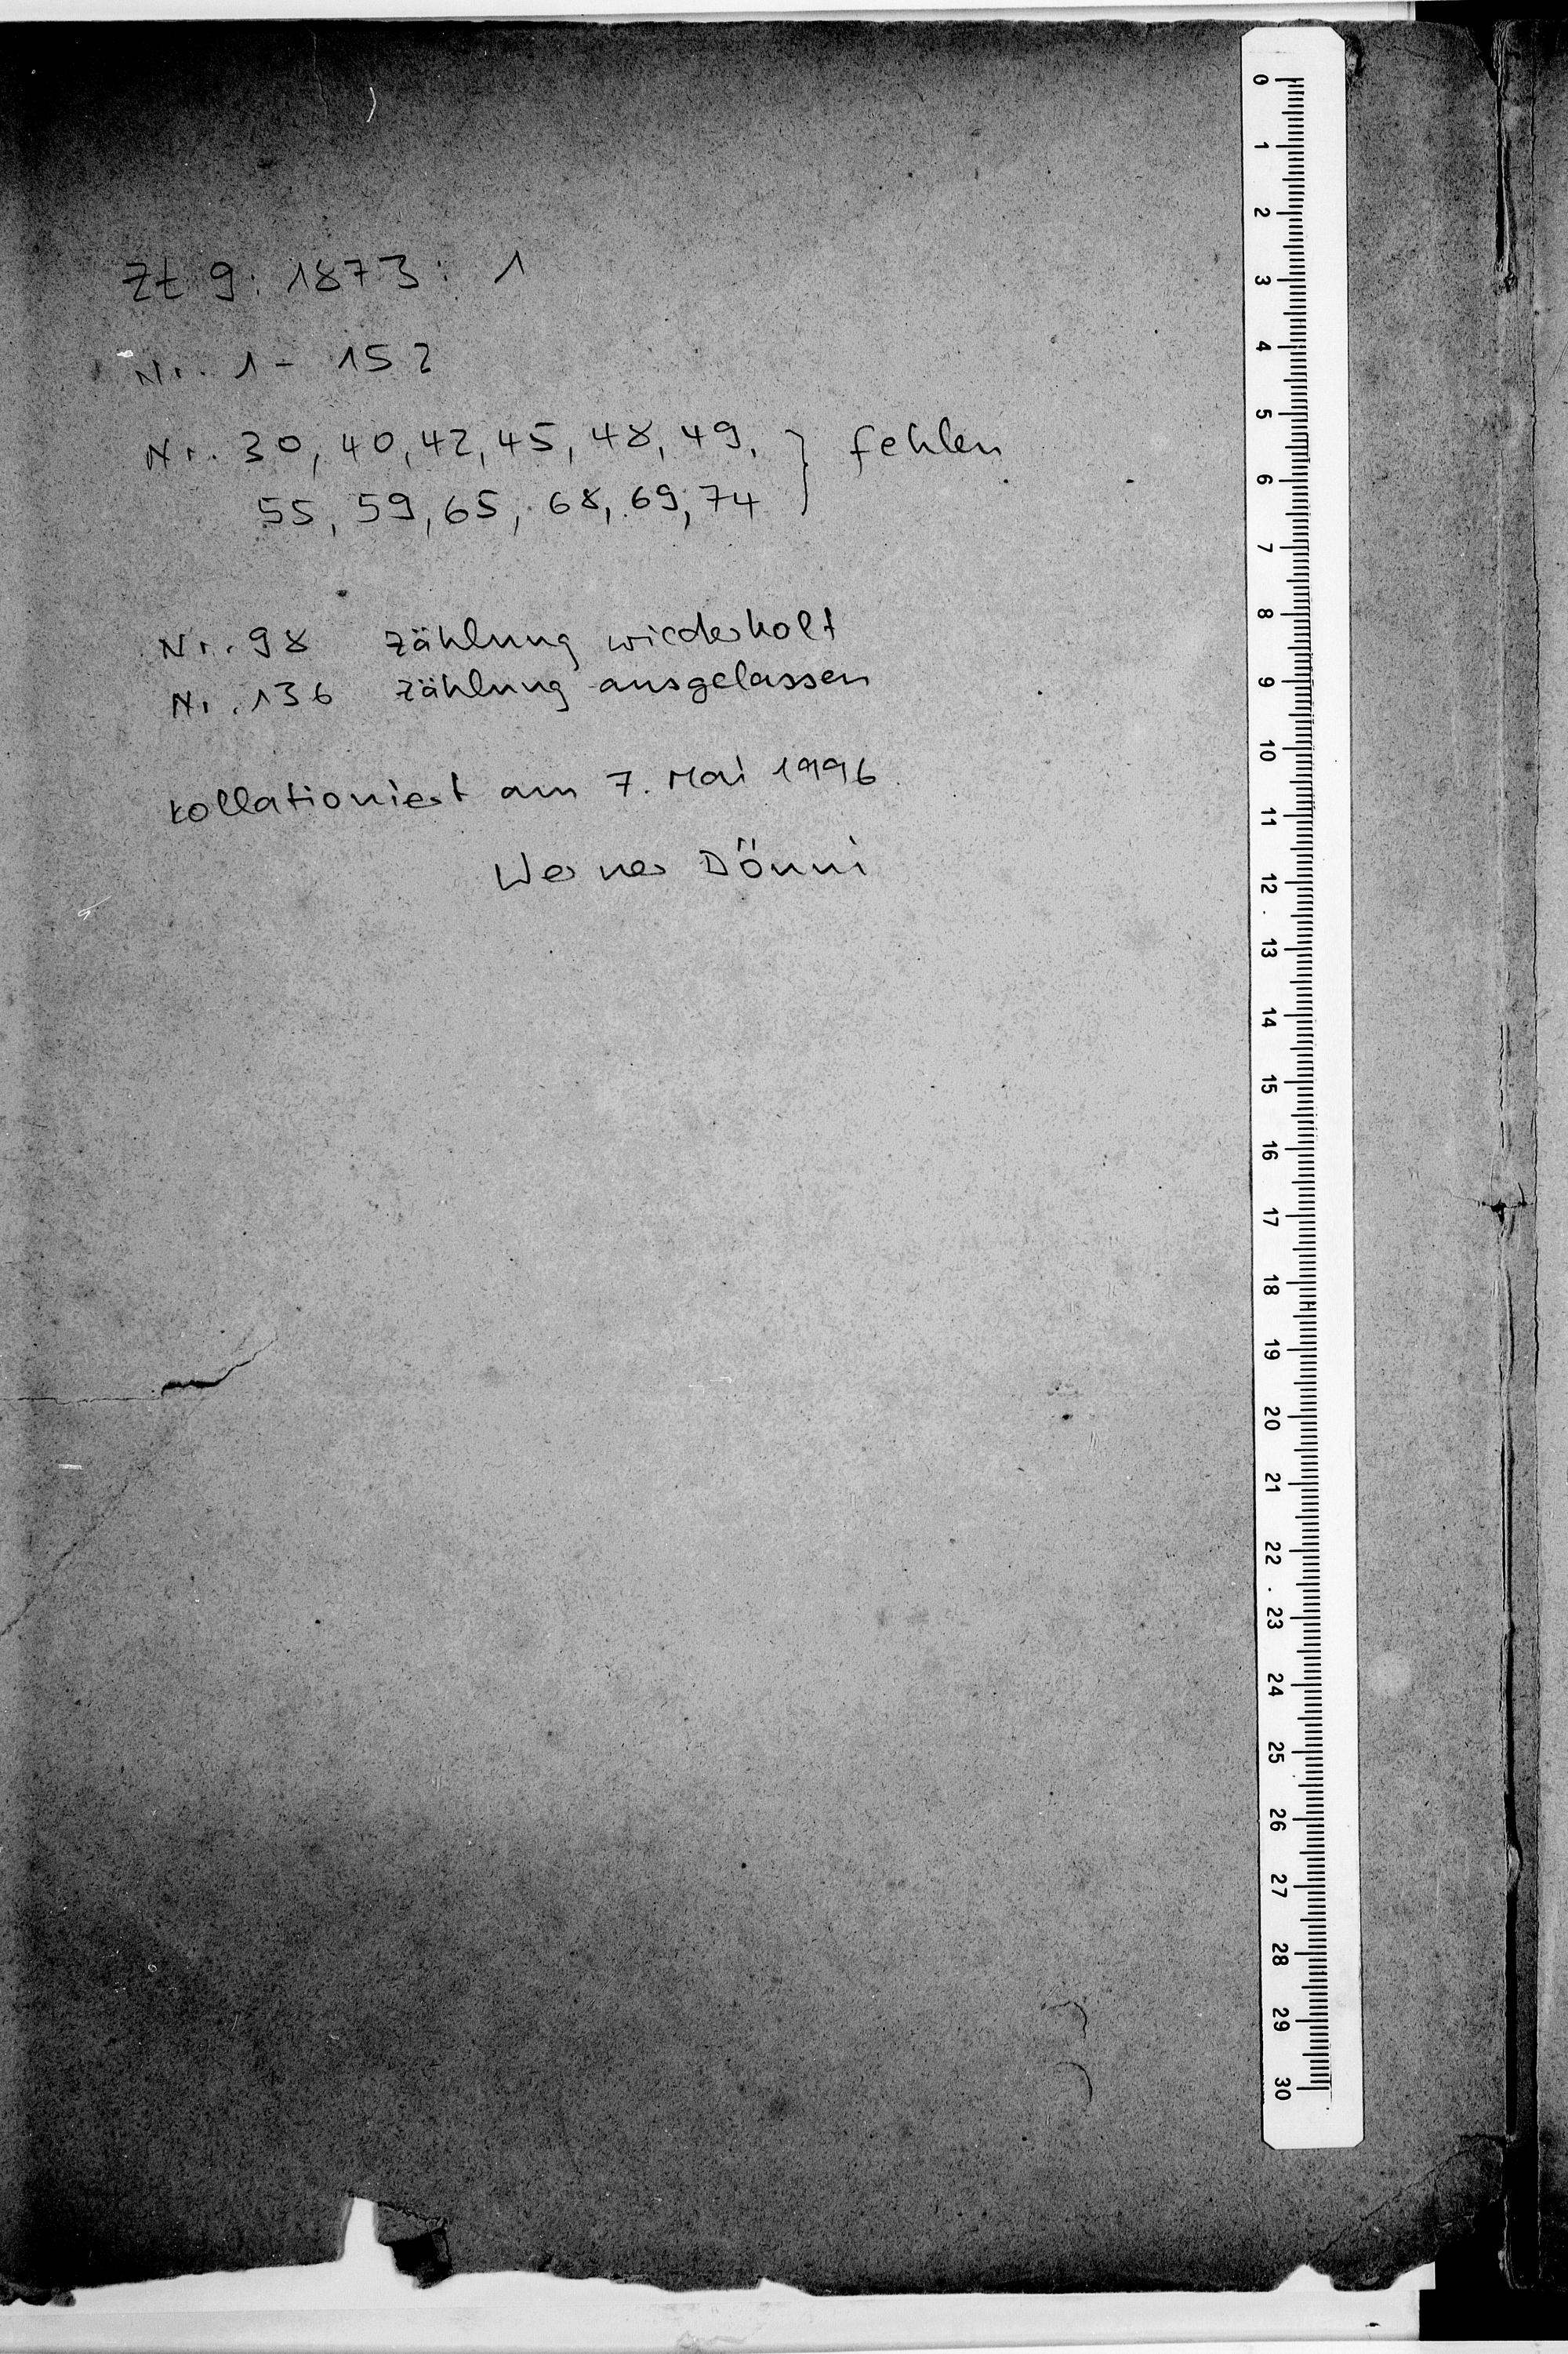 Zt 9: 1873: 1
Nr. 1 - 152
Nr. 30, 40, 42, 45, 48, 49, } fehlen
55, 59, 65, 68, 69, 74
Nr. 98 Zählung wiederholt
Nr. 136 Zählung ausgelassen
kollationiert am 7. Mai 1996
Werner Dönni
0 1 2 3 4 5 6 7 8 9 10 11 12 13 14 15 16 17 18 19 20 21 22 23 24 25 26 27 28 29 30